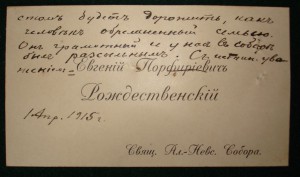 стомъ будетъ дорожить, какъ
человѣкъ обремененный семьею.
Онъ грамотный и у насъ въ Соборѣ
былъ разсыльнымъ. Съ истин. ува-
женіемъ
Евгеній Порфиріевичъ
Рождественскій
1 Апр. 1915 г.
Свящ. Ал.-Невс. Собора.